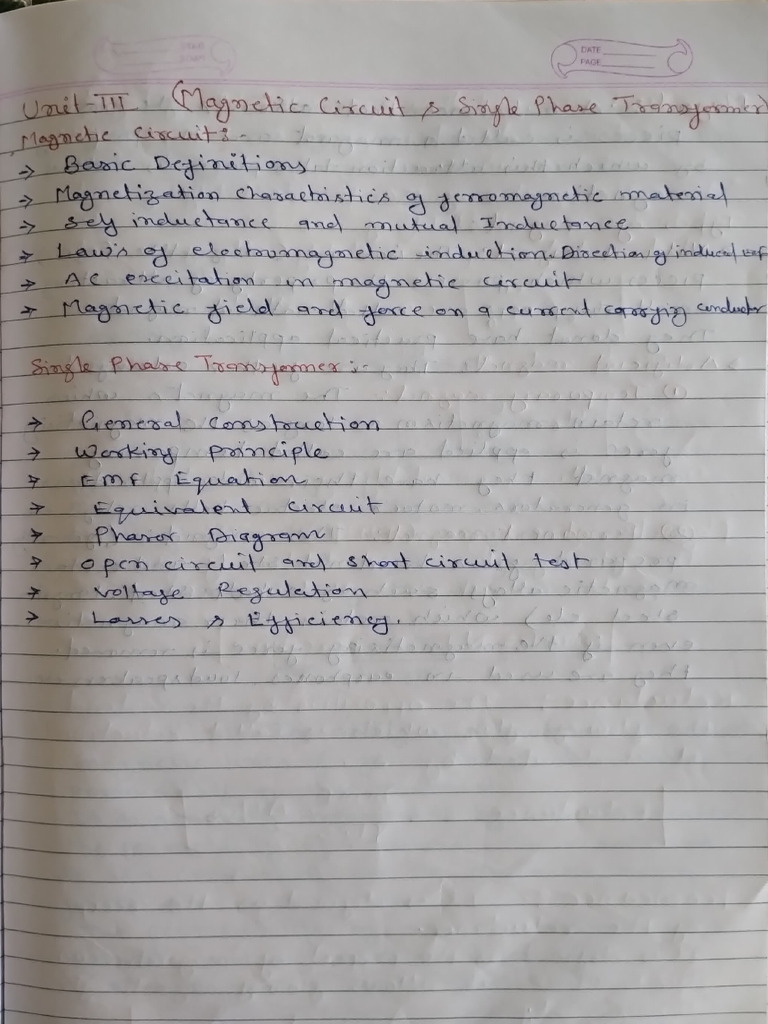 DATE
PAGE
Unit-III (Magnetic Circuit & Single Phase Transformer)
Magnetic Circuit:-
→ Basic Definitions
→ Magnetization Charactristics of ferromagnetic material
→ Self inductance and mutual Inductance
→ Law's of electromagnetic induction. Direction of induced emf
→ AC excitation in magnetic circuit
→ Magnetic field and force on a current carrying conductor
Single Phase Transformer:-
→ General construction
→ Working principle
→ EMF Equation
→ Equivalent circuit
→ Phasor Diagram
→ Open circuit and short circuit test
→ Voltage Regulation
→ Losses & Efficiency.